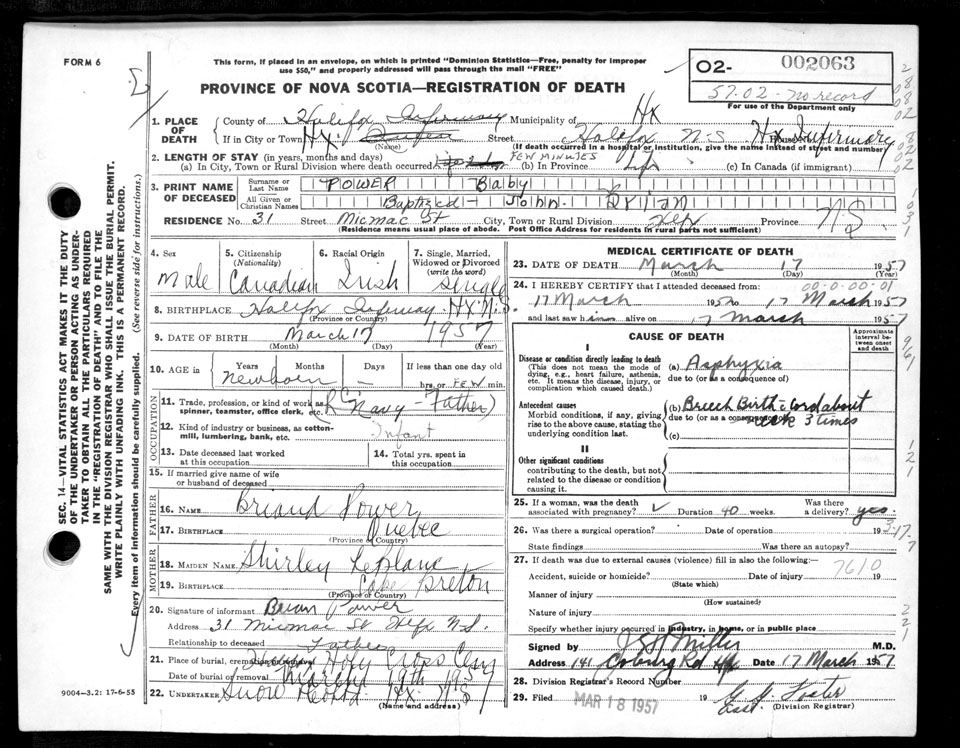 FORM 6
This form, if placed in an envelope, on which is printed "Dominion Statistics—Free, penalty for improper
use $50," and properly addressed will pass through the mail "FREE"
PROVINCE OF NOVA SCOTIA—REGISTRATION OF DEATH
O2- 002063
57-02- no record
For use of the Department only
1. PLACE OF DEATH
County of Halifax Infirmary Municipality of Hx
If in City or Town Hx Street Halifax N-S House No. Hx Infirmary
(Name) (If death occurred in a hospital or institution, give the name instead of street and number)
2. LENGTH OF STAY (in years, months and days)
(a) In City, Town or Rural Division where death occurred FEW MINUTES (b) In Province (c) In Canada (if immigrant)
3. PRINT NAME OF DECEASED
Surname or Last Name POWER Baby
All Given or Christian Names Baptized - John Brian
RESIDENCE No. 31 Street Micmac St City, Town or Rural Division Hfx Province N.S.
(Residence means usual place of abode. Post Office Address for residents in rural parts not sufficient)
4. Sex Male
5. Citizenship (Nationality) Canadian
6. Racial Origin Irish
7. Single, Married, Widowed or Divorced (write the word) Single
8. BIRTHPLACE Halifax Infirmary Hx N.S.
(Province or Country)
9. DATE OF BIRTH March 17 1957
(Month) (Day) (Year)
10. AGE in Years Months Days If less than one day
Newborn — hrs. or FEW min.
OCCUPATION
11. Trade, profession, or kind of work as spinner, teamster, office clerk, etc. Navy - Father)
12. Kind of industry or business, as cotton-mill, lumbering, bank, etc. Infant
13. Date deceased last worked at this occupation
14. Total yrs. spent in this occupation
15. If married give name of wife or husband of deceased
FATHER
16. NAME Power
17. BIRTHPLACE Quebec
(Province or Country)
MOTHER
18. MAIDEN NAME Shirley LeBlanc
19. BIRTHPLACE Cape Breton
(Province or Country)
20. Signature of informant Brian Power
Address 31 Micmac St Hfx N.S.
Relationship to deceased Father
21. Place of burial, cremation or removal Holy Cross Cem
Date of burial or removal March 19th 1957
22. UNDERTAKER Snow Hx N.S.
(Name and address)
9004—3.2: 17-6-55
MEDICAL CERTIFICATE OF DEATH
23. DATE OF DEATH March 17 1957
(Month) (Day) (Year)
24. I HEREBY CERTIFY that I attended deceased from: 00-0-00-01
17 March 1957 to 17 March 1957
and last saw him alive on 17 March 1957
CAUSE OF DEATH
Approximate interval between onset and death
I
Disease or condition directly leading to death
(This does not mean the mode of dying, e.g., heart failure, asthenia, etc. It means the disease, injury, or complication which caused death.)
(a) Asphyxia
due to (or as a consequence of)
Antecedent causes
Morbid conditions, if any, giving rise to the above cause, stating the underlying condition last.
(b) Breech Birth c Cord about
due to (or as a consequence of) neck 3 times
(c)
II
Other significant conditions
contributing to the death, but not related to the disease or condition causing it.
25. If a woman, was the death associated with pregnancy? Duration 40 weeks. Was there a delivery? yes.
26. Was there a surgical operation? Date of operation 19
State findings Was there an autopsy?
27. If death was due to external causes (violence) fill in also the following:— 7610
Accident, suicide or homicide? Date of injury 19
(State which)
Manner of injury
(How sustained)
Nature of injury
Specify whether injury occurred in industry, in home, or in public place
Signed by Miller M.D.
Address 141 Coburg Rd Hfx Date 17 March 1957
28. Division Registrar's Record Number
29. Filed MAR 18 1957 19 Foster
(Division Registrar)
SEC. 14—VITAL STATISTICS ACT MAKES IT THE DUTY
OF THE UNDERTAKER OR PERSON ACTING AS UNDER-
TAKER TO OBTAIN ALL THE PARTICULARS REQUIRED
IN THE "REGISTRATION OF DEATH" AND TO FILE THE
SAME WITH THE DIVISION REGISTRAR WHO SHALL ISSUE THE BURIAL PERMIT.
WRITE PLAINLY WITH UNFADING INK. THIS IS A PERMANENT RECORD.
Every item of information should be carefully supplied. (See reverse side for instructions.)